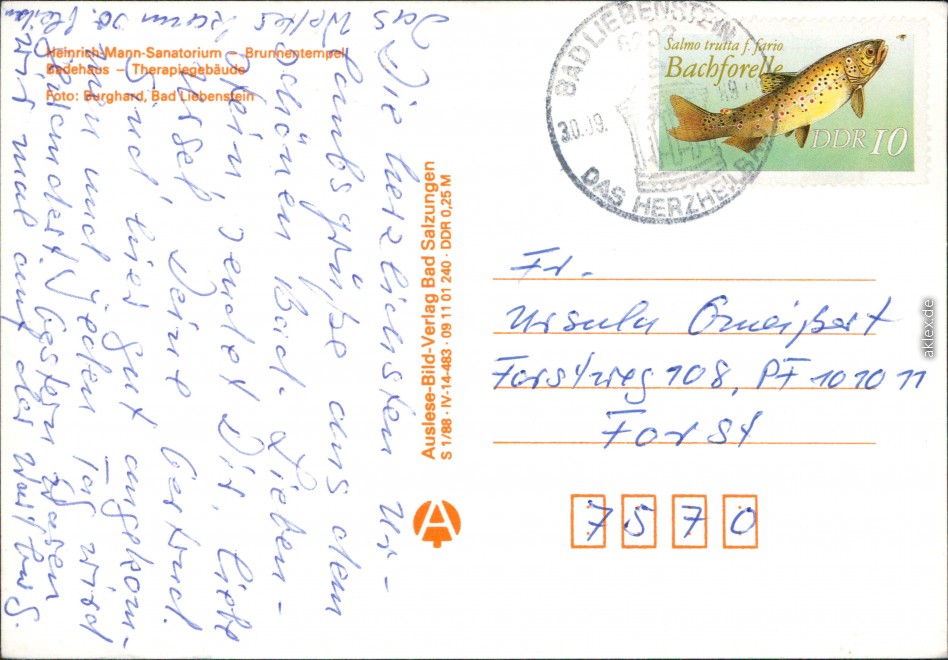 Heinrich-Mann-Sanatorium – Brunnentempel
Badehaus – Therapiegebäude
Foto: Burghard, Bad Liebenstein
Die herzlichsten Ur-
laubsgrüße aus dem
schönen Bad Lieben-
stein sendet Dir, liebe
Ursel, Deine Gertrud.
Sind hier gut angekom-
men und jeden Tag wird
gewandert. Gestern waren
wir mal auf der Wartburg.
Das Wetter kann so bleiben
Auslese-Bild-Verlag Bad Salzungen
S 1/88 · IV-14-483 · 09 11 01 240 · DDR 0,25 M
BAD LIEBENSTEIN
30.09.
DAS HERZHEILBA
Salmo trutta f. fario
Bachforelle
DDR 10
Fr.
Ursula
Forstweg 108, PF 101011
Forst
7570
aklex.de